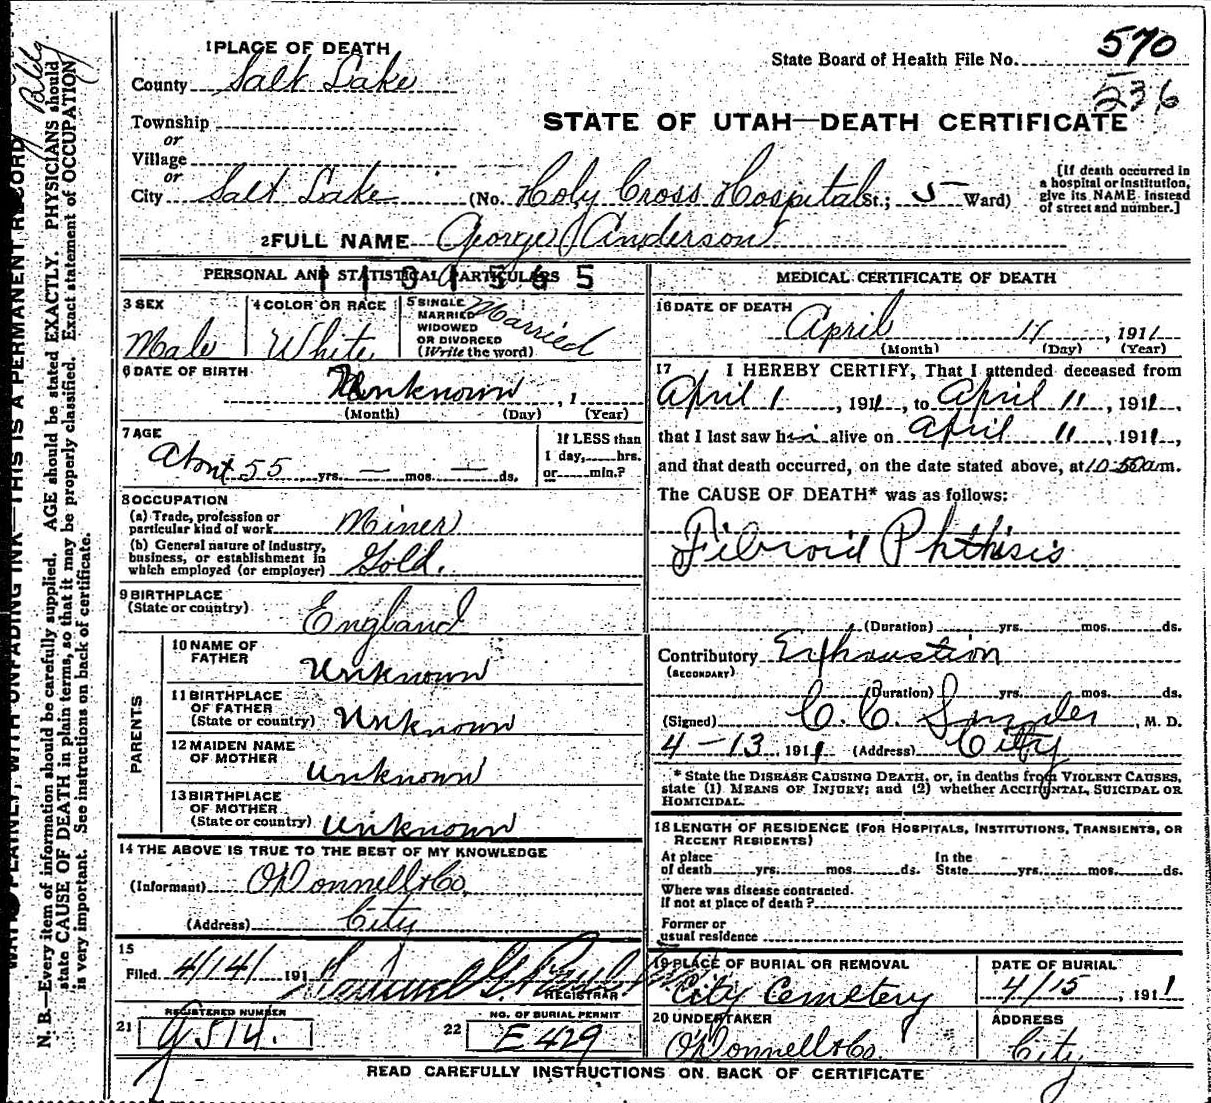 570
State Board of Health File No.
236
1 PLACE OF DEATH
County Salt Lake
Township
or
Village
or
City Salt Lake (No. Holy Cross Hospital St.; 5 Ward)
STATE OF UTAH—DEATH CERTIFICATE
[If death occurred in
a hospital or institution,
give its NAME instead
of street and number.]
2 FULL NAME George Anderson
PERSONAL AND STATISTICAL PARTICULARS
3 SEX
Male
4 COLOR OR RACE
White
5 SINGLE
MARRIED
WIDOWED
OR DIVORCED
(Write the word)
Married
6 DATE OF BIRTH
Unknown , 1
(Month) (Day) (Year)
7 AGE
About 55 yrs. — mos. — ds.
If LESS than
1 day, hrs.
or min.?
8 OCCUPATION
(a) Trade, profession or
particular kind of work Miner
(b) General nature of industry,
business, or establishment in
which employed (or employer) Gold.
9 BIRTHPLACE
(State or country)
England
PARENTS
10 NAME OF
FATHER
Unknown
11 BIRTHPLACE
OF FATHER
(State or country) Unknown
12 MAIDEN NAME
OF MOTHER
Unknown
13 BIRTHPLACE
OF MOTHER
(State or country) Unknown
14 THE ABOVE IS TRUE TO THE BEST OF MY KNOWLEDGE
(Informant) O'Donnell & Co.
(Address) City
15
Filed 4/14/ 191
REGISTRAR
REGISTERED NUMBER
21
NO. OF BURIAL PERMIT
22 E 429
MEDICAL CERTIFICATE OF DEATH
16 DATE OF DEATH
April 11, 1911
(Month) (Day) (Year)
17 I HEREBY CERTIFY, That I attended deceased from
April 1, 1911, to April 11, 1911,
that I last saw him alive on April 11, 1911,
and that death occurred, on the date stated above, at 10-50 am.
The CAUSE OF DEATH* was as follows:
Fibroid Phthisis
(Duration) yrs. mos. ds.
Contributory Exhaustion
(SECONDARY)
(Duration) yrs. mos. ds.
(Signed) C. C. Snyder, M. D.
4-13 1911 (Address) City
* State the DISEASE CAUSING DEATH, or, in deaths from VIOLENT CAUSES,
state (1) MEANS OF INJURY; and (2) whether ACCIDENTAL, SUICIDAL OR
HOMICIDAL.
18 LENGTH OF RESIDENCE (FOR HOSPITALS, INSTITUTIONS, TRANSIENTS, OR
RECENT RESIDENTS)
At place
of death yrs. mos. ds.
In the
State yrs. mos. ds.
Where was disease contracted.
If not at place of death?
Former or
usual residence
19 PLACE OF BURIAL OR REMOVAL
City Cemetery
DATE OF BURIAL
4/15, 1911
20 UNDERTAKER
O'Donnell & Co.
ADDRESS
City
READ CAREFULLY INSTRUCTIONS ON BACK OF CERTIFICATE
WRITE PLAINLY, WITH UNFADING INK—THIS IS A PERMANENT RECORD
N. B.—Every item of information should be carefully supplied. AGE should be stated EXACTLY. PHYSICIANS should
state CAUSE OF DEATH in plain terms, so that it may be properly classified. Exact statement of OCCUPATION
is very important. See instructions on back of certificate.